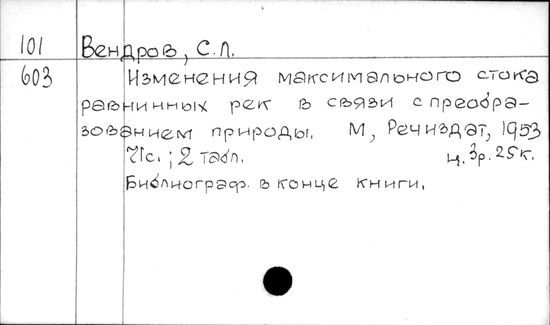 101 Вендров, С.Л.
603 Изменения максимального стока
равнинных рек в связи с преобра-
зованием природы. М, Речиздат, 1953
71с.; 2 табл. ц. 3р. 25к.
Библиограф. в конце книги.